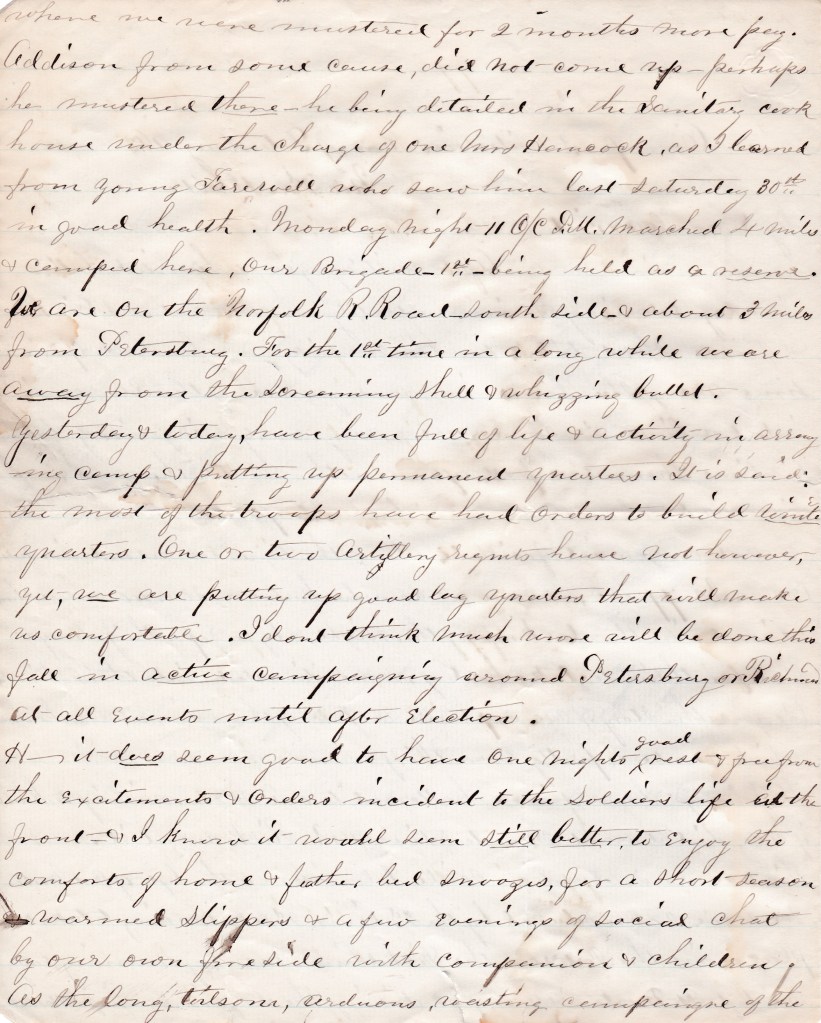 where we were mustered for 2 months more pay.
Addison from some cause, did not come up - perhaps
he mustered there - he being detailed in the Sanitary cook
house under the charge of one Mrs Hancock, as I learned
from young Farewell who saw him last saturday 30th
in good health. Monday night 11 O/C P.M. Marched 4 miles
& camped here, our Brigade - 1st - being held as a reserve.
We are on the Norfolk R. Road - south side - & about 3 miles
from Petersburg. For the 1st time in a long while we are
away from the screaming shell & whizzing bullet.
Yesterday & today, have been full of life & activity in arrang
-ing camp & putting up permanent quarters. It is said:
the most of the troops have had orders to build winter
quarters. One or two Artillery regmts have not however,
yet, we are putting up good log quarters that will make
us comfortable. I dont think much more will be done this
fall in active campaigning around Petersburg or Richmond
at all Events until after Election.
H— it does seem good to have one nights good rest & free from
the Excitements & Orders incident to the Soldiers life in the
front - & I know it would seem still better, to Enjoy the
comforts of home & father bed snoozes, for a short season
& warmed slippers & a few Evenings of social chat
by our own fireside with companion & children.
As the long, toilsome, arduous, wasting campaigne of the